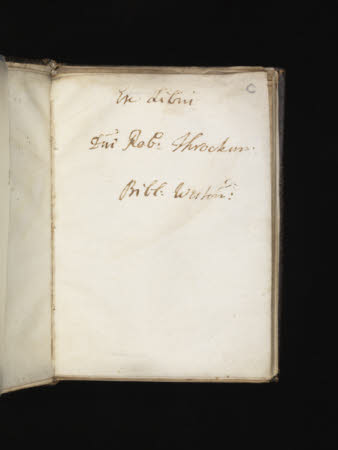 Ex Libris
Dni Rob: Throckm:
Bibl: Weston: